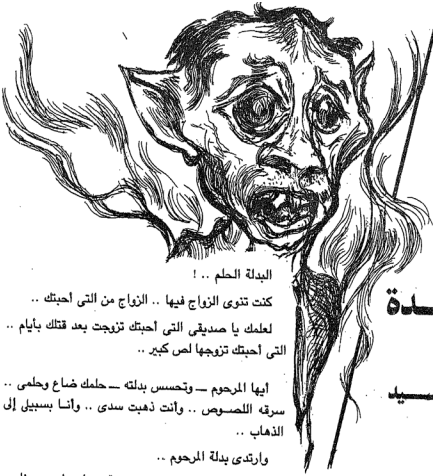 البدلة الحلم .. !
كنت تنوى الزواج فيها .. الزواج من التى أحبتك ..
لعلمك يا صديقى التى أحبتك تزوجت بعد قتلك بأيام ..
التى أحبتك تزوجها لص كبير ..
أيها المرحوم ــ وتحسس بدلته ــ حلمك ضاع وحلمى ..
سرقه اللصوص .. وأنت ذهبت سدى .. وأنا بسبيلى إلى
الذهاب ..
وارتدى بدلة المرحوم ..